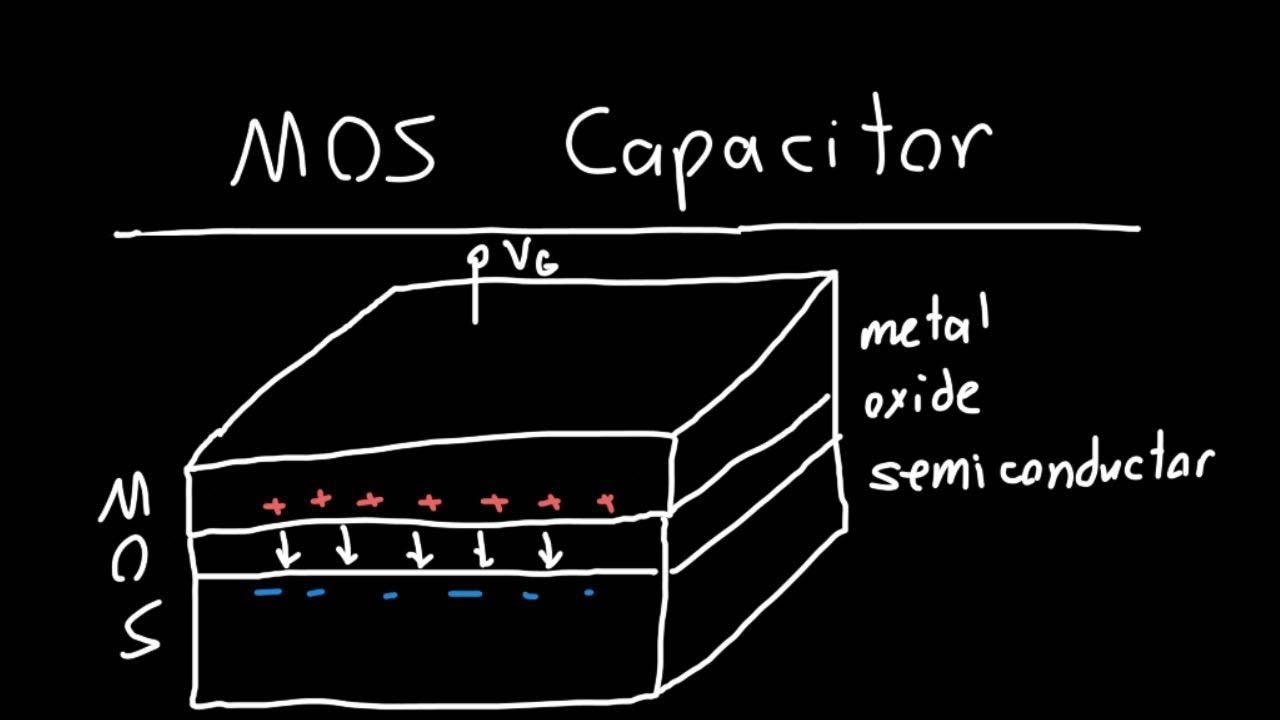 MOS Capacitor
VG
metal
oxide
semiconductor
M
O
S